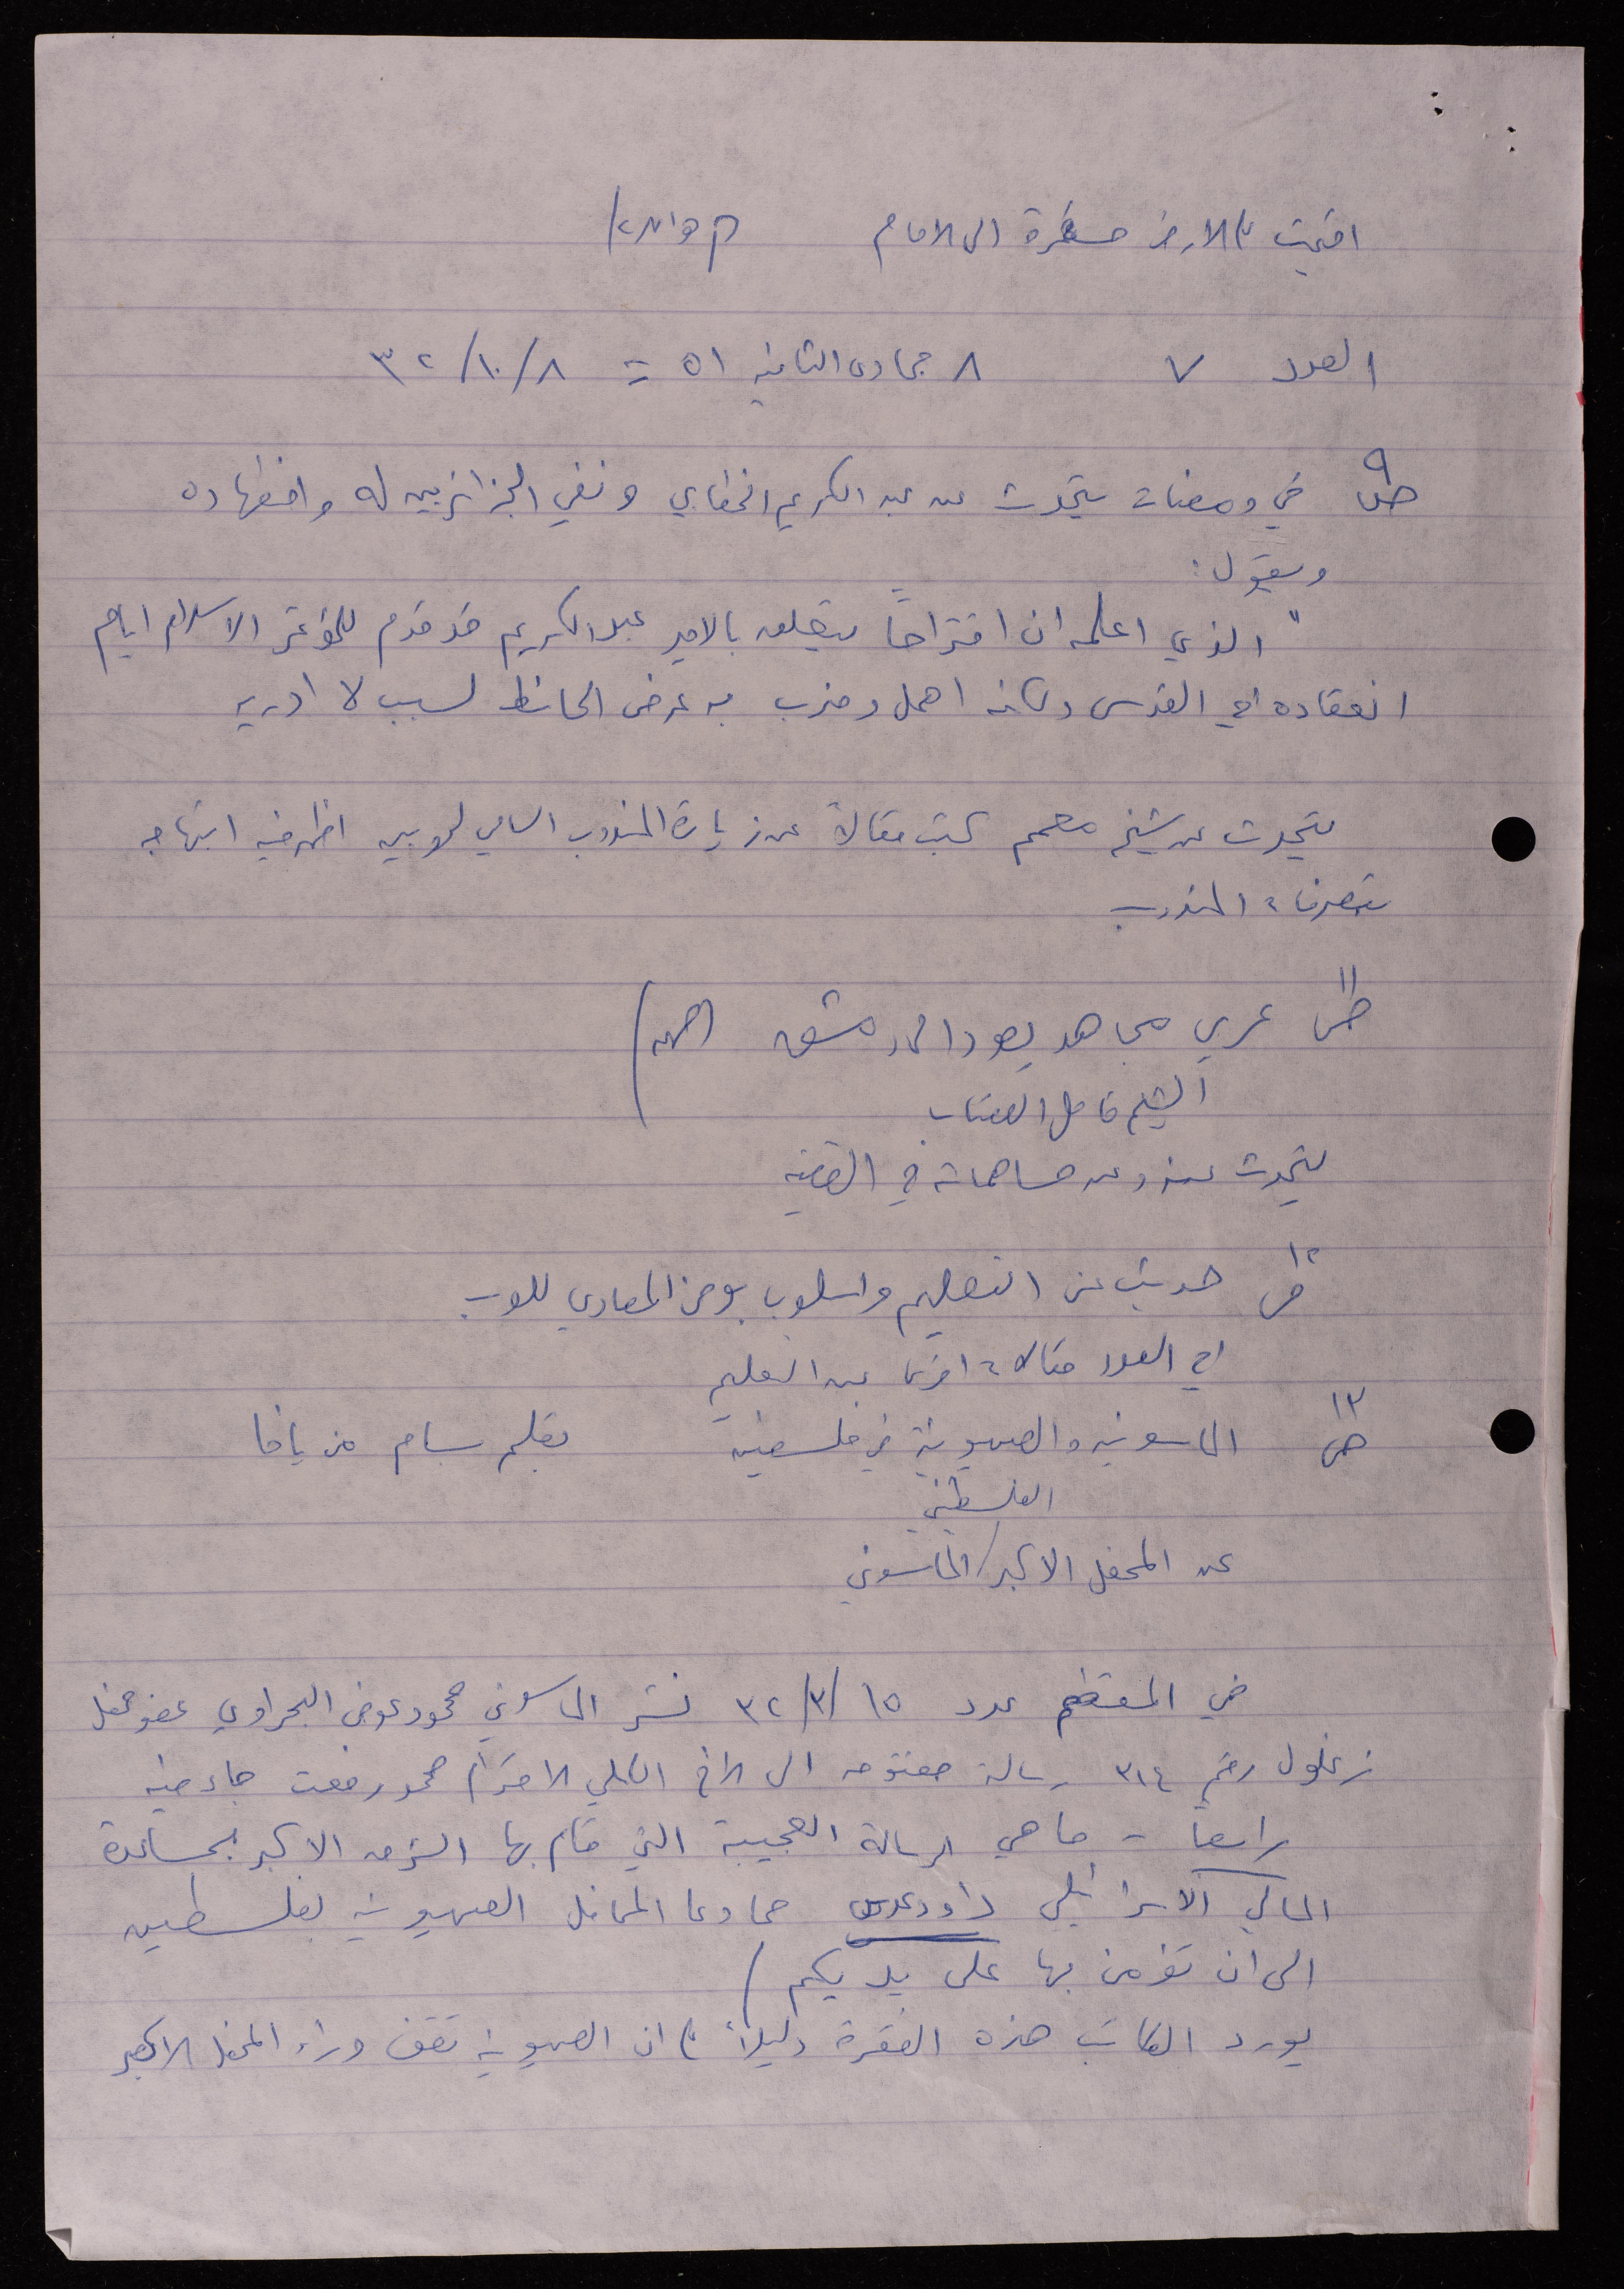 اقيمت على الارض صخرة الى الامام
العدد ٧ ٨ جمادى الثانيه ٥١ = ٨/١٠/٣٢
ص٩ في ومضات يتحدث عن عبد الكريم الخطابي ونفي الجزائريين له واضطهاده
ويقول:
"الذي اعلمه ان اقتراحاً يتعلق بالامير عبد الكريم قد قدم للمؤتمر الاسلامي ايام
انعقاده في القدس ولكنه اهمل وضرب به عرض الحائط لسبب لا ادريه
يتحدث عن شيخ معمم كتب مقالاً عن زيارة المندوب السامي لحوبيه اظهر فيه ابتهاجه
بتصرفات المندوب
ص١١ عربي مجاهد يعود الى دمشق
الشيخ كامل القصاب
يتحدث عنه وعن مساهماته في القضيه
ص١٢ حديث عن التعليم واسلوب بومن المعادي للعرب
في العدد مقالات اخرى عن التعليم
ص١٣ الماسونيه والصهيونية في فلسطين بقلم بسام من يافا
الفلسطيني
عن المحفل الاكبر/الماسوني
في المقطم عدد ١٥/٣/٣٢ نشر الماسوني محمود عوض البحراوي عضو محفل
زغلول رقم ٣١٤ رسالة مفتوحه الى الاخ الكلي الاحترام محمود رفعت جاء فيه
رابعاً - ما هي الرسالة العجيبة التي قام بها الشرق الاكبر بمساعدة
المالي الاسرائيلي داود عدس مما دعا المحافل الصهيونيه بفلسطين
الى ان تؤمن بها على يديكم)
يورد الكاتب هذه الفقرة دليلاً على ان الصهيونية تقف وراء المحفل الاكبر